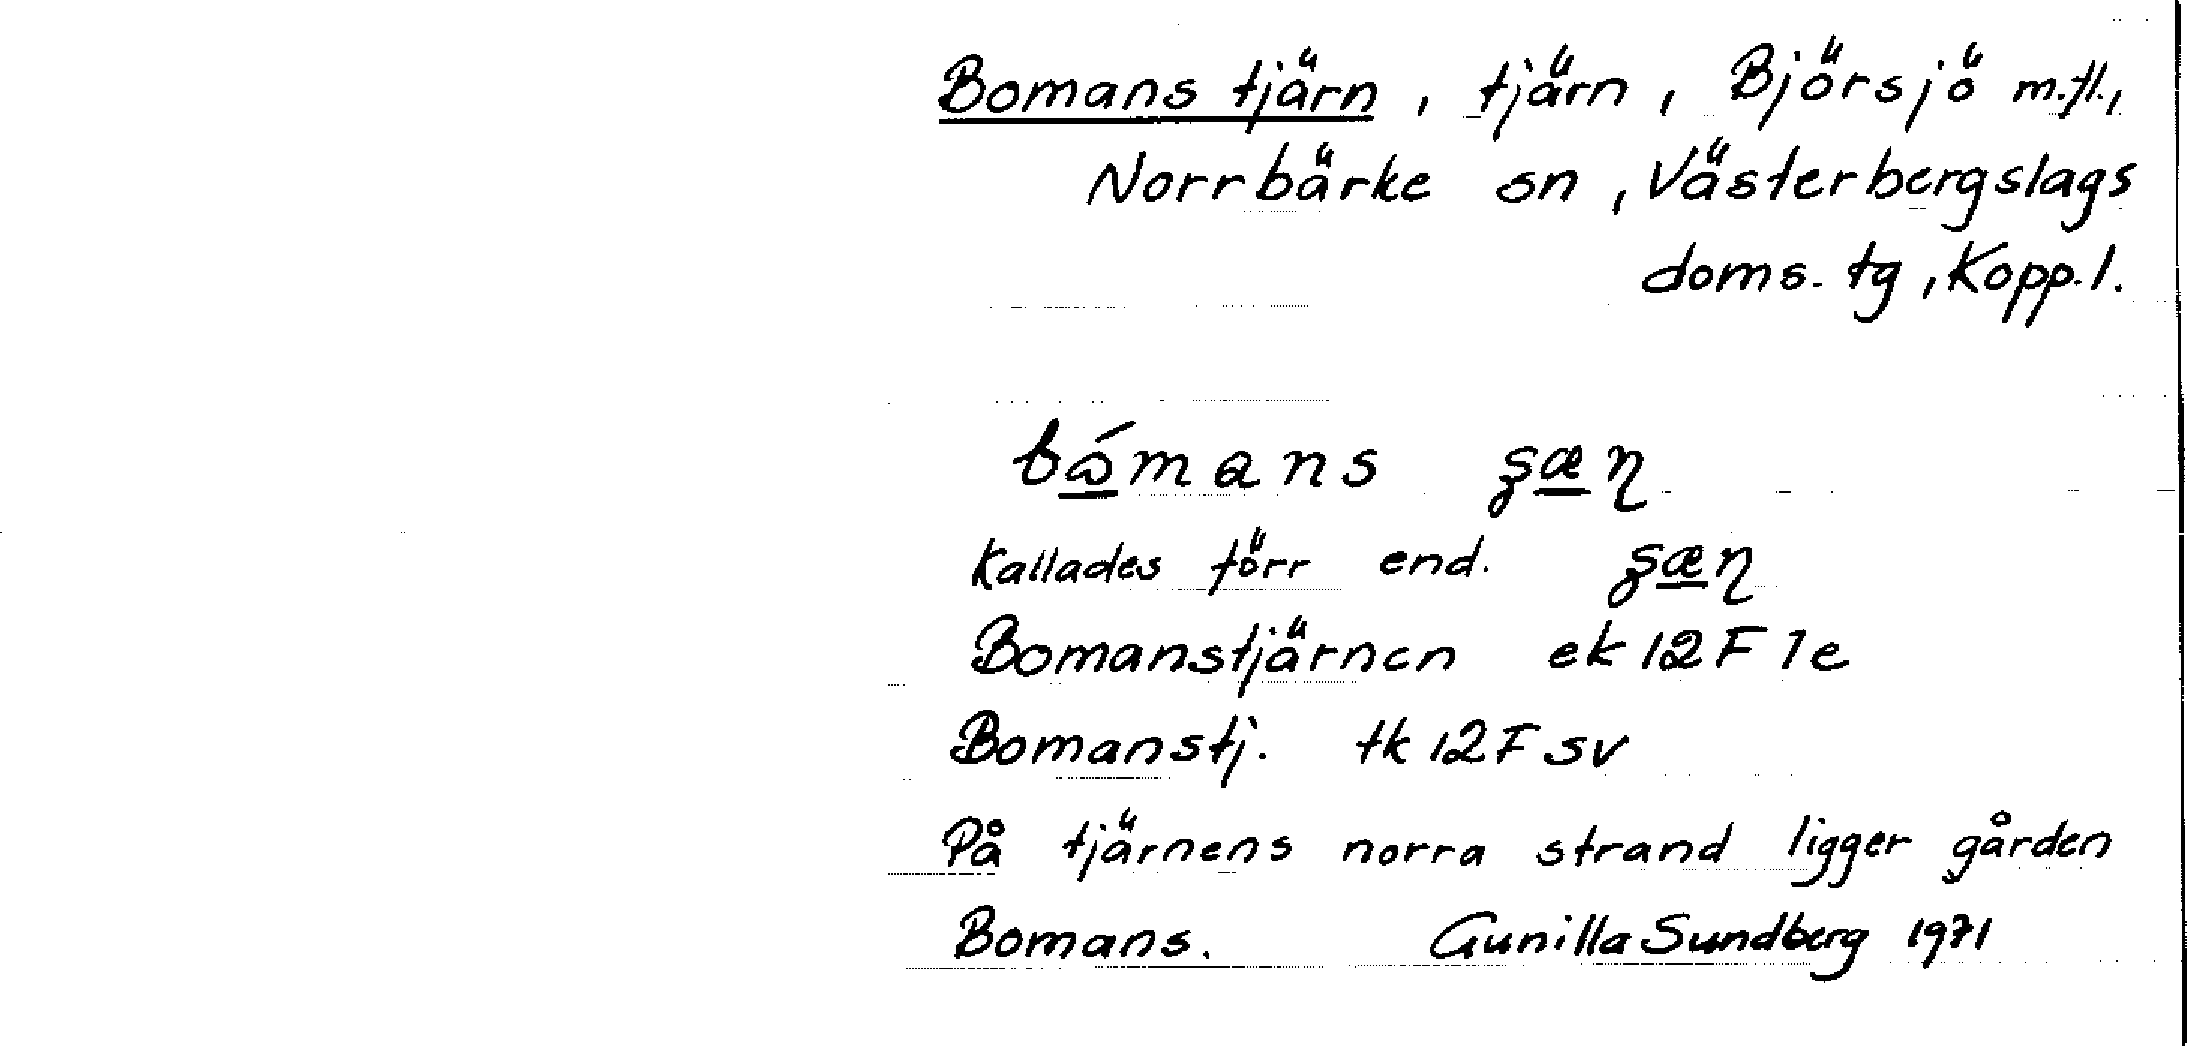 Bomans tjärn, tjärn, Björsjö m.fl.,
Norrbärke sn, Västerbergslags
doms. tg, Kopp. l.
Kallades förr end.
Bomanstjärnen ek 12 F 1e
Bomanstj. tk 12 F sv
På tjärnens norra strand ligger gården
Bomans. Gunilla Sundberg 1971